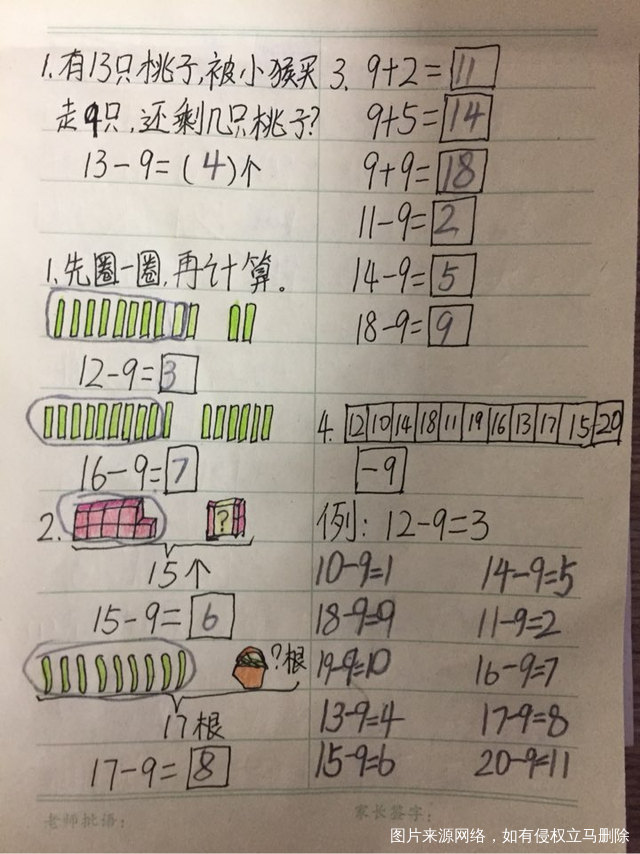 1.有13只桃子,被小猴买
走9只,还剩几只桃子?
13-9=(4)个
1.先圈一圈,再计算。
12-9=3
16-9=7
2.
?
15个
15-9=6
?根
17根
17-9=8
3. 9+2=11
9+5=14
9+9=18
11-9=2
14-9=5
18-9=9
4. 12 10 14 18 11 19 16 13 17 15 20
-9
例:12-9=3
10-9=1 14-9=5
18-9=9 11-9=2
19-9=10 16-9=7
13-9=4 17-9=8
15-9=6 20-9=11
老师批语: 家长签字:
图片来源网络,如有侵权立马删除